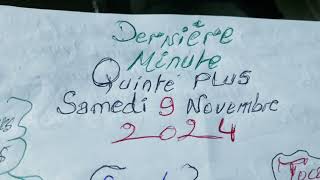 Dernière
Minute
Quinté PLUS
Samedi 9 Novembre
2024